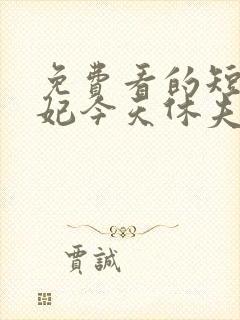 免费看的短
妃今天休夫
賈誠